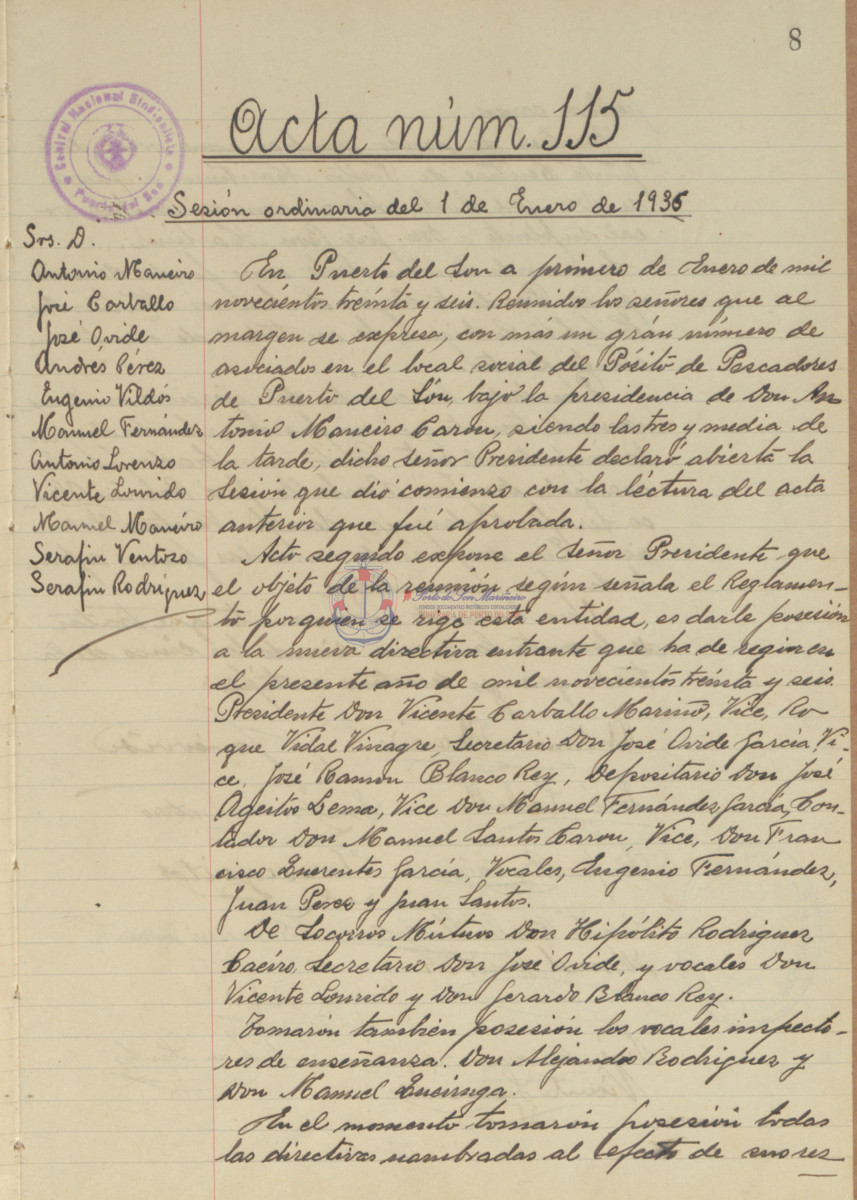 8
Acta núm. 115
Central Nacional Sindicalista
Puerto del Son
Sesión ordinaria del 1 de Enero de 1936
Srs. D.
Antonio Maneiro
José Carballo
José Ovide
Andrés Pérez
Eugenio Vildós
Manuel Fernández
Antonio Lorenzo
Vicente Lourido
Manuel Maneiro
Serafin Ventoso
Serafin Rodríguez
En Puerto del Son a primero de Enero de mil
novecientos treinta y seis. Reunidos los señores que al
margen se expresa, con más un grán número de
asociados en el local social del Pósito de Pescadores
de Puerto del Són, bajo la presidencia de Don An
tonio Maneiro Carou, siendo las tres y media de
la tarde, dicho señor Presidente declaró abierta la
Sesión que dió comienzo con la léctura del acta
anterior que fué aprobada.
Acto segundo expone el Señor Presidente que
el objeto de la reunión, según señala el Reglamen-
to por quien se rige esta entidad, es darle posesión
a la nueva directiva entrante que ha de regir en
el presente año de mil novecientos treinta y seis.
Presidente Don Vicente Carballo Mariño, Vice, Ro
que Vidal Vinagre, Secretario Don José Ovide García, Vi-
ce, José Ramon Blanco Rey, Depositario Don José
Ageitos Lema, Vice Don Manuel Fernández García, Con-
tador Don Manuel Santos Carou, Vice, Don Fran
cisco Querentes García, Vocales, Eugenio Fernández,
Juan Perez y Juan Santos.
De Socorros Mútuos Don Hipólito Rodriguez
Caéiro, Secretario Don José Ovide, y vocales Don
Vicente Lourido y Don Gerardo Blanco Rey.
Tomarón también posesión los vocales inspecto-
res de enseñanza. Don Alejandro Rodriguez y
Don Manuel
En el momento tomarón posesión todas
las directivas nombradas al efecto de sus res
Porto do Son Mariñeiro